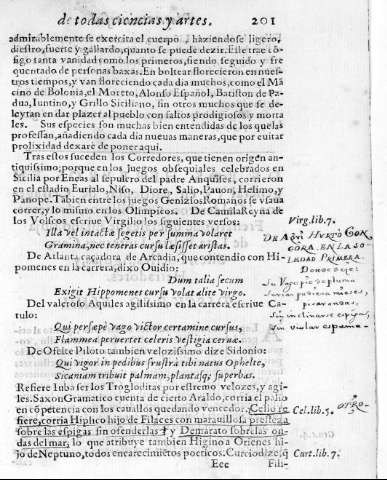 de todas ciencias y artes. 201
admirablemente se exercita el cuerpo, haziendose ligero,
diestro, fuerte y gallardo, quanto se puede dezir. Este trae cō
sigo tanta vanidad como los primeros, siendo seguido y fre
quentado de personas baxas. En boltear florecieron en nues
tros tiempos, y van floreciendo cada dia muchos, como el Ma
cino de Bolonia, el Moreto, Alonso Español, Batiston de Pa-
dua, Iuntino, y Grillo Siciliano, sin otros muchos que se de-
leytan en dar plazer al pueblo con saltos prodigiosos y morta
les. Sus especies son muchas bien entendidas de los que las
professan, añadiendo cada dia nueuas maneras, que por euitar
prolixidad dexare de poner aqui.
Tras estos suceden los Corredores, que tienen origen an-
tiquissimo, porque en los juegos obsequiales celebrados en
Sicilia por Eneas al sepulcro del padre Anquises, corrieron
en el estadio Eurialo, Niso, Diore, Salio, Pauon, Helimo, y
Panope. Tābien entre los juegos Geniales Romanos se vsaua
correr, y lo mismo en los Olimpicos. De Camila Reyna de
los Volscos escriue Virgilio los siguientes versos:
Virg. lib. 7.
Illa vel intactæ segetis per summa volaret
Gramina, nec teneras cursu læsisset aristas.
De Atlanta caçadora de Arcadia, que contendio con Hi-
pomenes en la carrera, dixo Ouidio:
Dum talia secum
Exigit Hippomenes cursu volat alite virgo.
Del valeroso Aquiles agilissimo en la carrera escriue Ca-
tulo:
Qui persæpe vago victor certamine cursus,
Flammea peruertet celeris vestigia ceruæ.
De Ofelte Piloto tambien velozissimo dize Sidonio:
Qui vigor in pedibus frustra tibi natus Ophelte,
Sicaniam tribuit palmam, plantasq; superbas.
Refiere Iuba ser los Trogloditas por estremo velozes, y agi-
les. Saxon Gramatico cuenta de cierto Araldo, corria el palio
en cōpetencia con los cauallos quedando vencedor. Celio re
fiere, corria Hiplico hijo de Filaces con marauillosa presteza
Cel. lib. 5.
OTRO.
sobre las espigas sin ofenderlas: y Demarato sobre las on
das del mar, lo que atribuye tambien Higino a Orienes hi-
jo de Neptuno, todos encarecimiētos poeticos. Curcio dize, q̄
Curt. lib. 7.
Ecc Fili-
DE AQVI HVRTO GON
GORA EN LA SO
LEDAD PRIMERA.